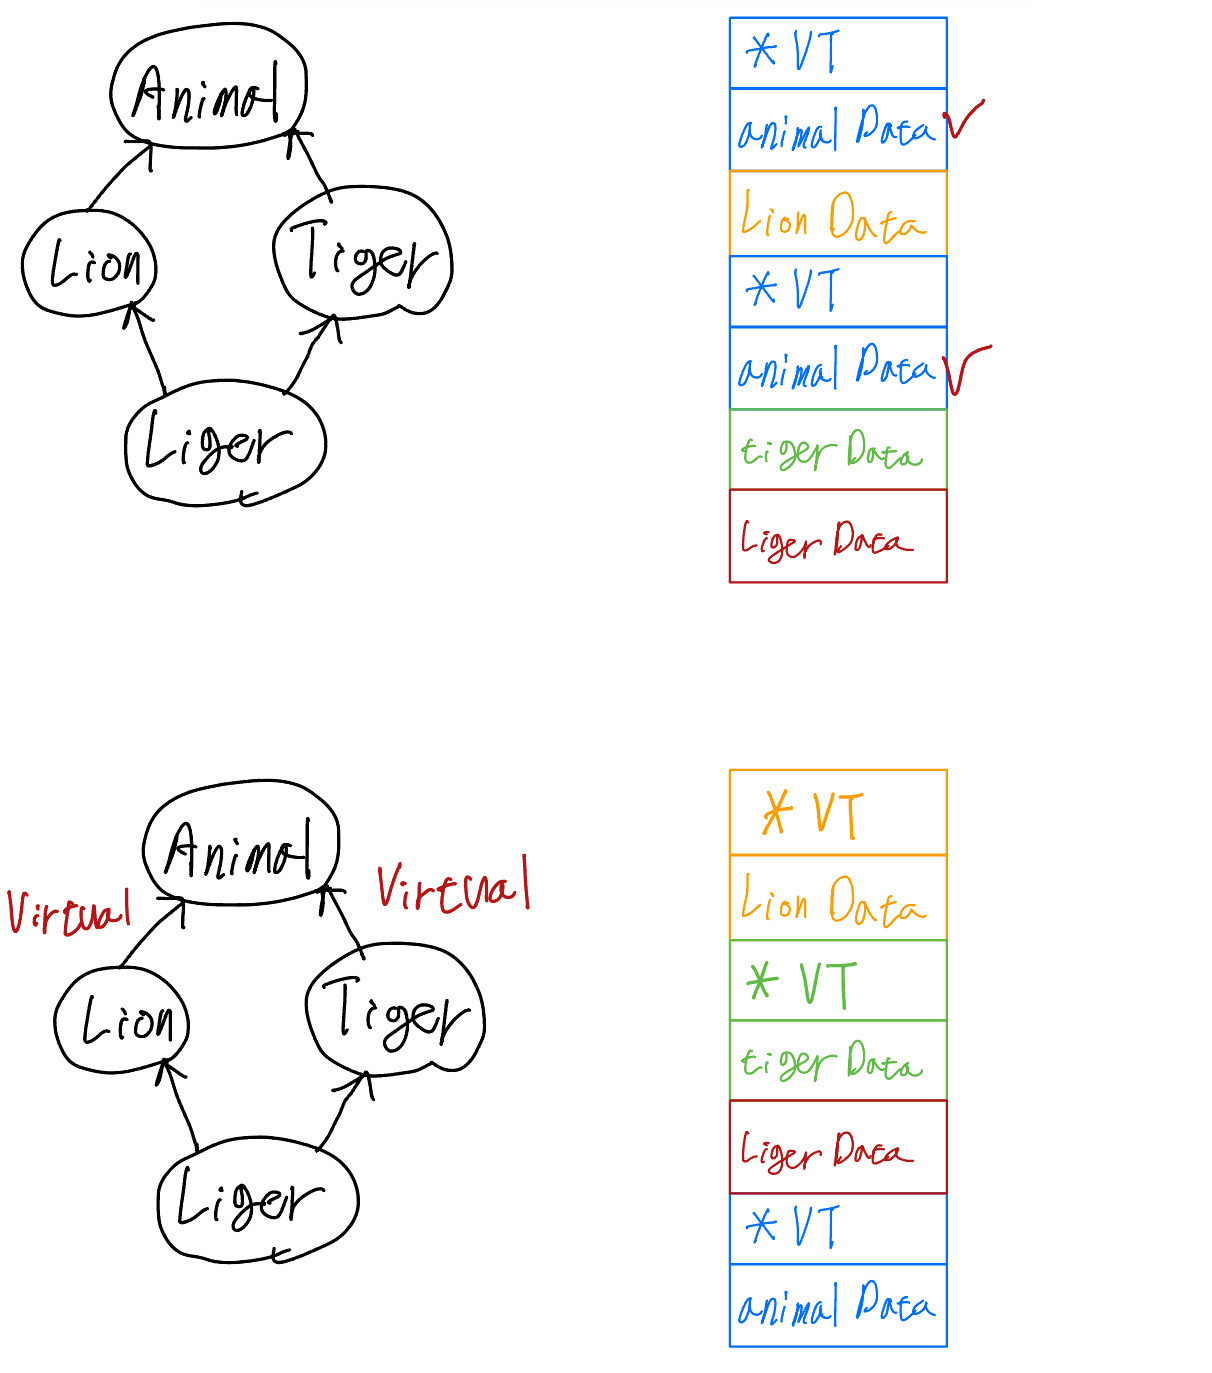 Animal
Lion
Tiger
Liger
* VT
animal Data
Lion Data
* VT
animal Data
tiger Data
Liger Data
Animal
Virtual
Virtual
Lion
Tiger
Liger
* VT
Lion Data
* VT
tiger Data
Liger Data
* VT
animal Data